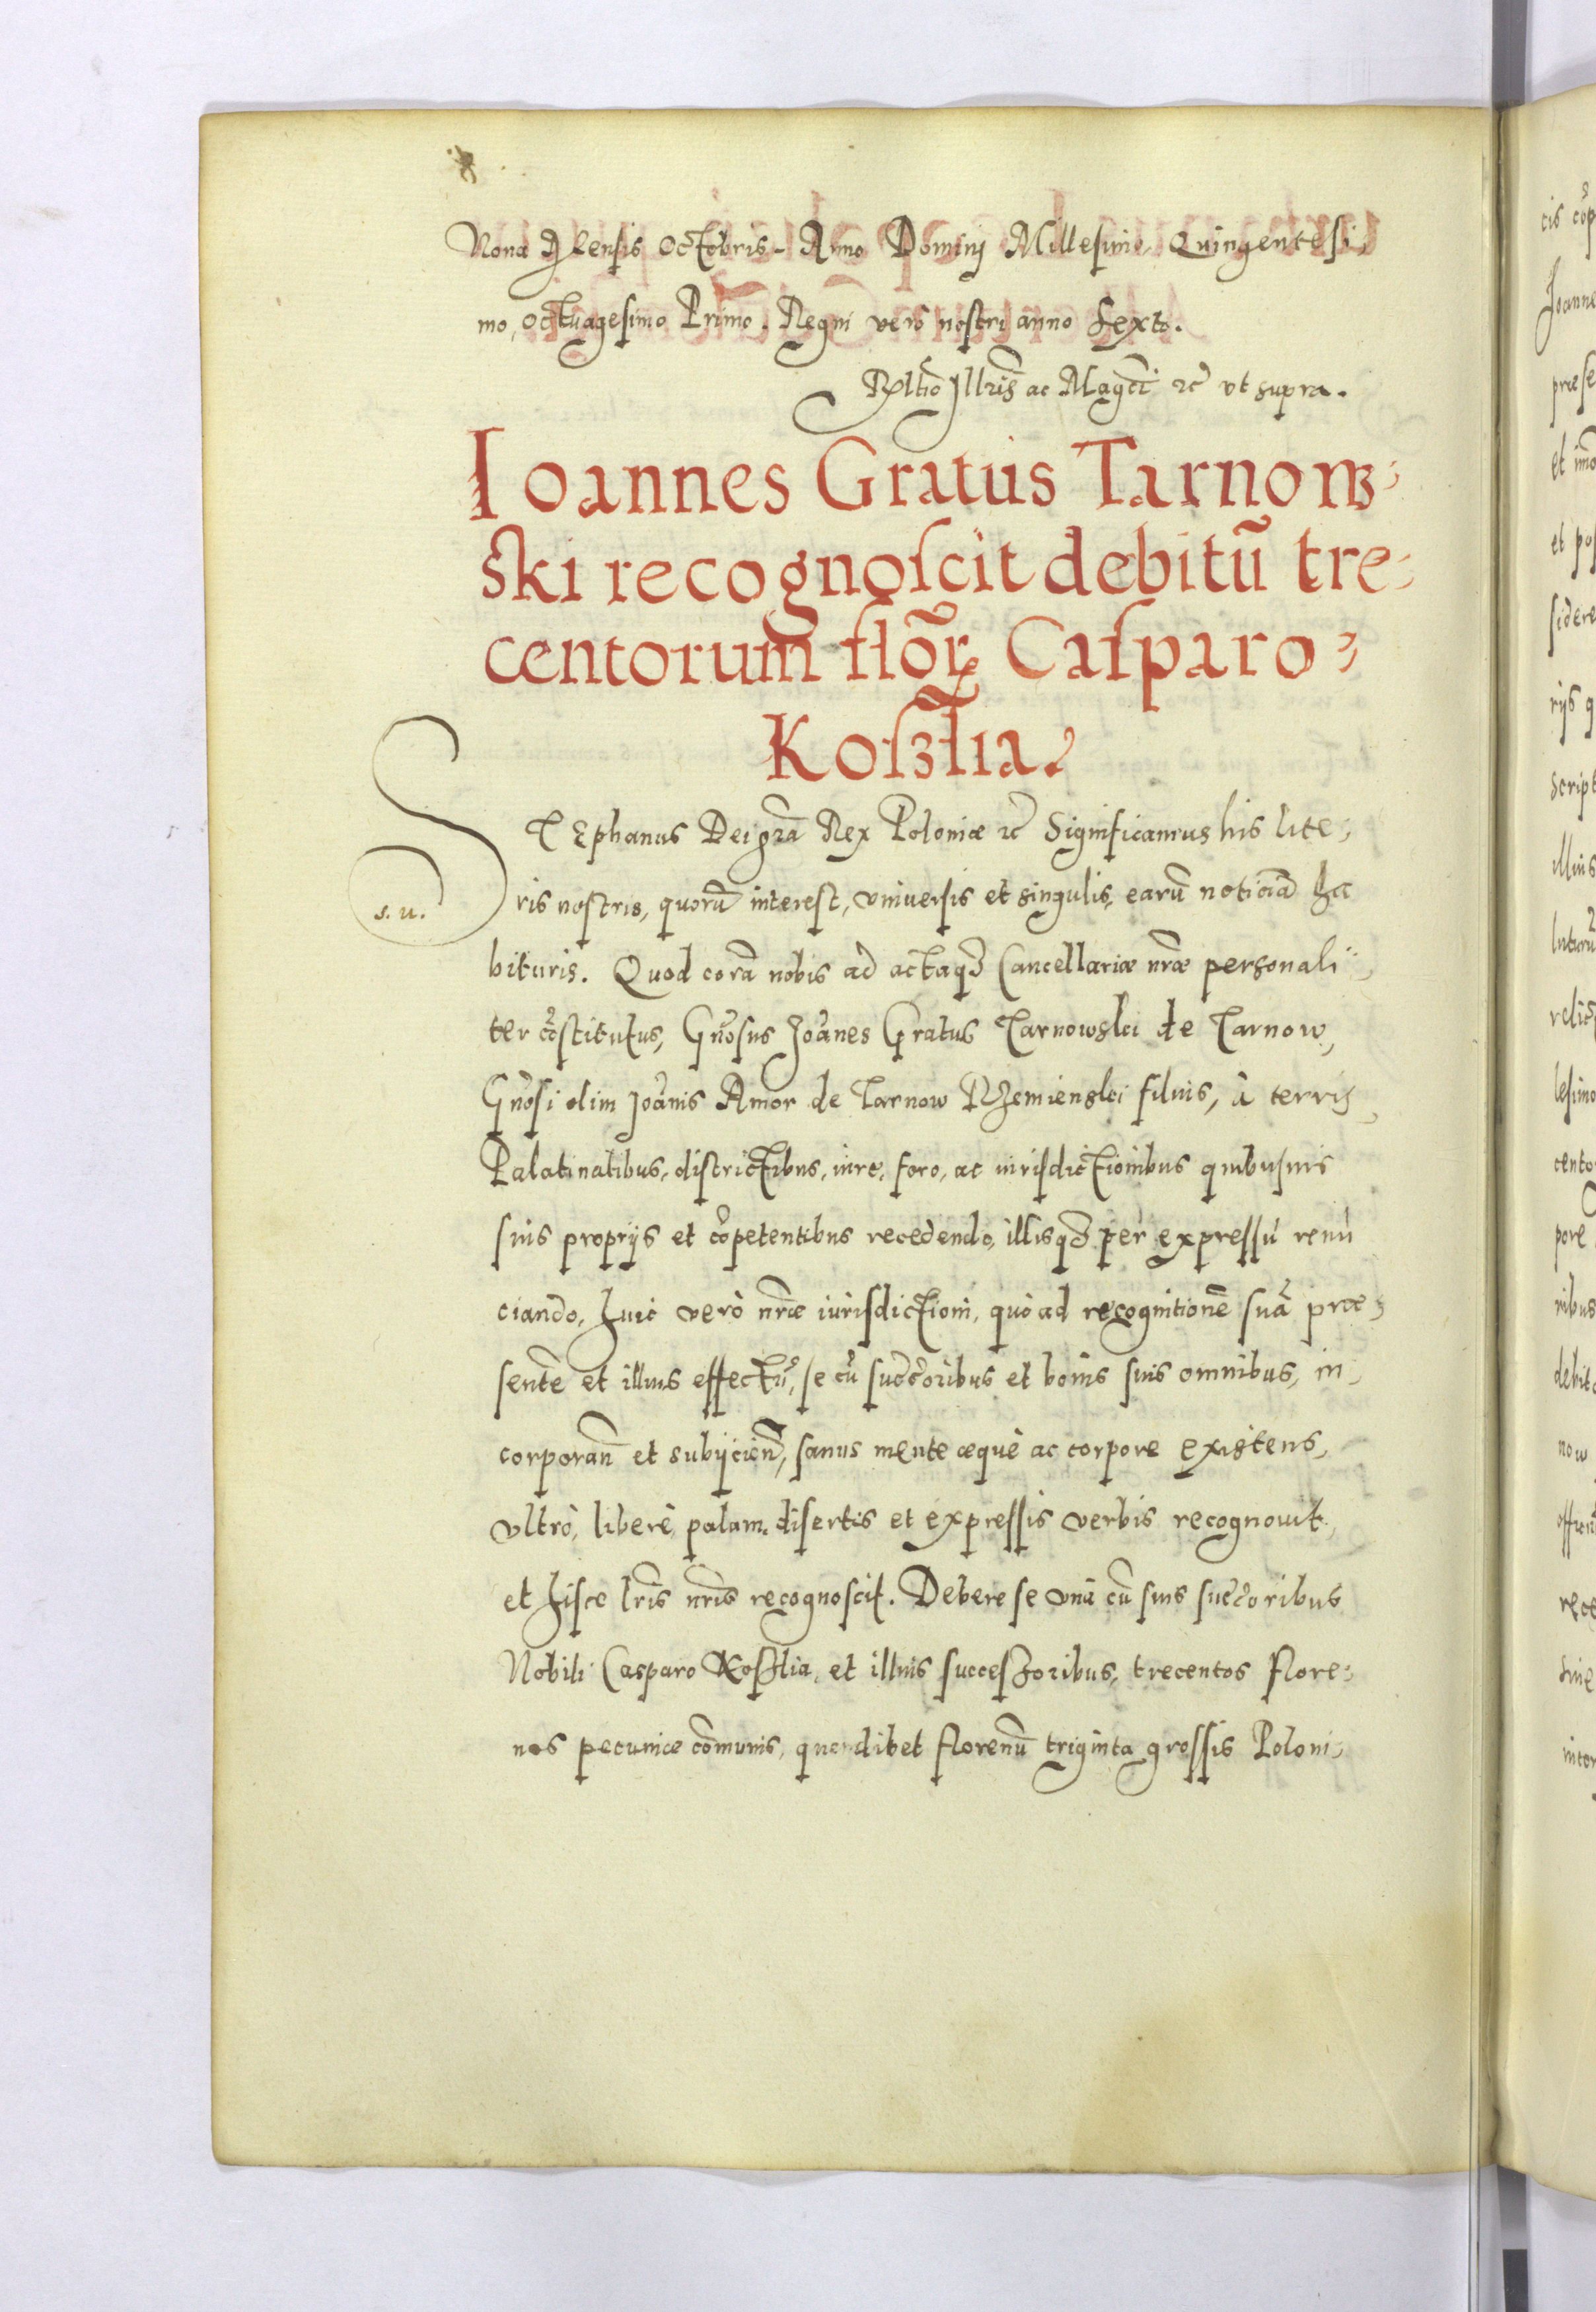 Nona Mensis Octobris Anno Dominj Millesimo Quingentesi,
mo, Octuagesimo Primo. Regni vero nostri anno Sexto.
Rltio Jllris ac Magci &c ut supra.
Ioannes Gratus Tarnow-
ski recognoscit debitũ tre-
centorum flor Casparo
Koszlia.
STEphanus Dei gra Rex Poloniæ &c Significamus his lite,
ris nostris, quorũ interest, universis et singulis, earũ noticiã ha
s. u.
bituris. Quod corã nobis ad actaqз Cancellariæ nræ personali
ter cõstitutus, Gñosus Joãnes Gratus Tarnowski de Tarnow,
Gñosi olim Joãnis Amor de Tarnow Rzemienski filius, à terris
Palatinatibus, districtibus, iure, foro, ac iurisdictionibus quibusuis
suis proprijs et cõpetentibus recedendo, illisqз per expressũ renũ
ciando, huic verò nræ iurisdictioni, quo ad recognitionẽ suã præ
sentẽ et illius effectũ, se cũ succõribus et bonis suis omnibus, in,
corporañ et subijcieñ, sanus mente æquè ac corpore existens,
vltrò, liberè, palam, disertis et expressis verbis recognouit,
et hisce lris nris recognoscit. Debere se vnà cũ suis succõribus
Nobili Casparo Koszlia, et illius successoribus, trecentos flore,
nos pecuniæ cõmunis, quemlibet florenũ triginta grossis Poloni,